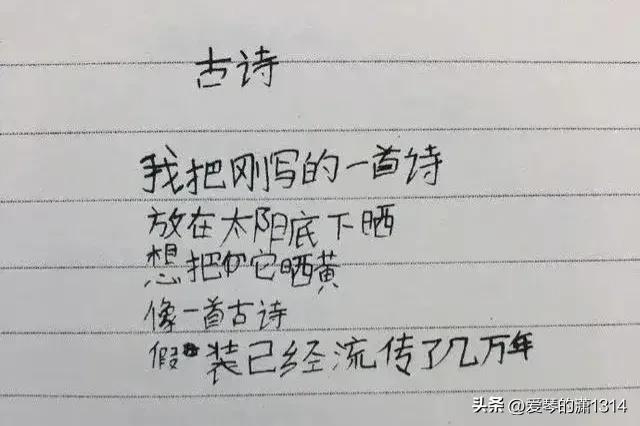 古诗
我把刚写的一首诗
放在太阳底下晒
想把它晒黄
像一首古诗
假装已经流传了几万年
头条 @爱琴的潇1314